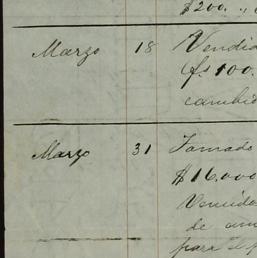 $200.
Marzo 18 Vendid
100.
cambio
Marzo 31 Tomado
$16.000
Vencido
de
para